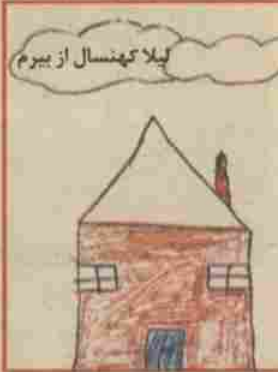 لیلا کهنسال از بیرم